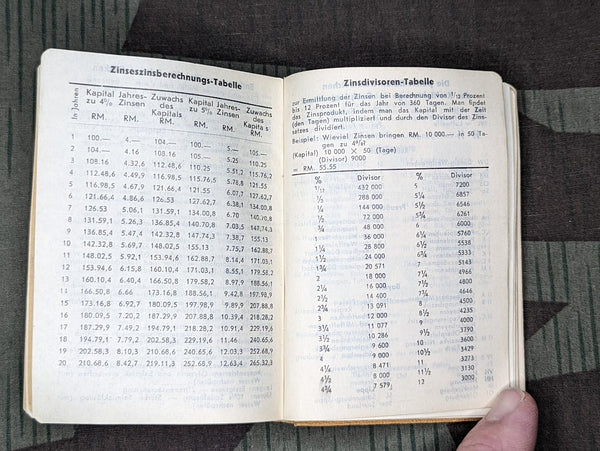 Zinseszinsberechnungs-Tabelle
In Jahren Kapital zu 4% RM. Jahres-Zinsen RM. Zuwachs des Kapitals RM. Kapital zu 5% RM. Jahres-Zinsen RM. Zuwachs des Kapitals RM.
1 100.— 4.— 104.— 100.— 5.— 105.—
2 104.— 4.16 108.16 105.— 5.25 110.25
3 108.16 4.32,6 112.48,6 110.25 5.51,2 115.76,2
4 112.48,6 4.49,9 116.98,5 115.76,2 5.78,8 121.55
5 116.98,5 4.67,9 121.66,4 121.55 6.07,7 127.62,7
6 121.66,4 4.86,6 126.53 127.62,7 6.38,1 134.00,8
7 126.53 5.06,1 131.59,1 134.00,8 6.70 140.70,8
8 131.59,1 5.26,3 136.85,4 140.70,8 7.03,5 147.74,3
9 136.85,4 5.47,4 142.32,8 147.74,3 7.38,7 155.13
10 142.32,8 5.69,3 148.02,1 155.13 7.75,7 162.88,7
11 148.02,1 5.92,1 153.94,2 162.88,7 8.14,4 171.03,1
12 153.94,2 6.15,8 160.10 171.03,1 8.55,1 179.58,2
13 160.10 6.40,4 166.50,4 179.58,2 8.97,9 188.56,1
14 166.50,4 6.66 173.16,4 188.56,1 9.42,8 197.98,9
15 173.16,8 6.92,7 180.09,5 197.98,9 9.89,9 207.88,8
16 180.09,5 7.20,4 187.29,9 207.88,8 10.39,4 218.28,2
17 187.29,9 7.49,2 194.79,1 218.28,2 10.91,4 229.19,6
18 194.79,1 7.79,2 202.58,3 229.19,6 11.46 240.65,6
19 202.58,3 8.10,3 210.68,6 240.65,6 12.03,3 252.68,9
20 210.68,6 8.42,7 219.11,3 252.68,9 12.63,4 265.32,3
Zinsdivisoren-Tabelle
zur Ermittlung der Zinsen bei Berechnung von 1/12 Prozent
bis 12 Prozent für das Jahr von 360 Tagen. Man findet
das Zinsprodukt, indem man das Kapital mit der Zeit
(den Tagen) multipliziert und durch den Divisor des Zins-
satzes dividiert.
Beispiel: Wieviel Zinsen bringen RM. 10 000.— in 50 Ta-
gen zu 4%?
(Kapital) 10 000 × 50 (Tage)
(Divisor) 9000
= RM. 55.55
% Divisor % Divisor
1/12 432 000 5 7200
288 000 5¼ 6857
¼ 144 000 5½ 6546
½ 72 000 5¾ 6261
¾ 48 000 6 6000
1 36 000 6¼ 5760
1¼ 28 800 6½ 5538
1½ 24 000 6¾ 5333
1¾ 20 571 7 5143
2 18 000 7¼ 4966
2¼ 16 000 7½ 4800
2½ 14 400 7¾ 4646
2¾ 13 091 8 4500
3 12 000 8½ 4235
3¼ 11 077 9 4000
3½ 9½ 3790
3¾ 9 600 10 3600
4 9 000 10½ 3429
4¼ 8 471 11 3273
4½ 8 000 11½ 3130
4¾ 7 579 12 3000